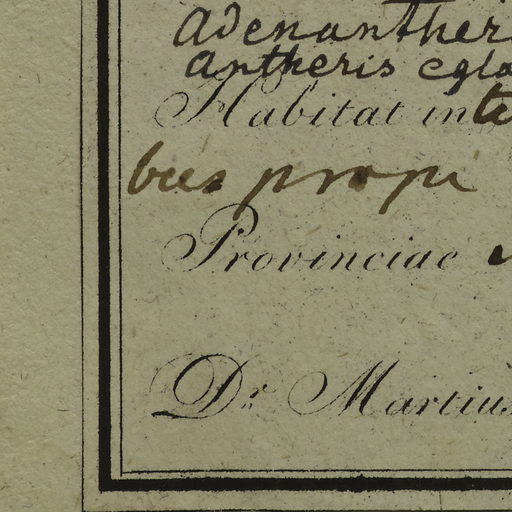 Adenanther
antheris egla
Habitat in te
bus propi
Provinciae
Dr. Martius